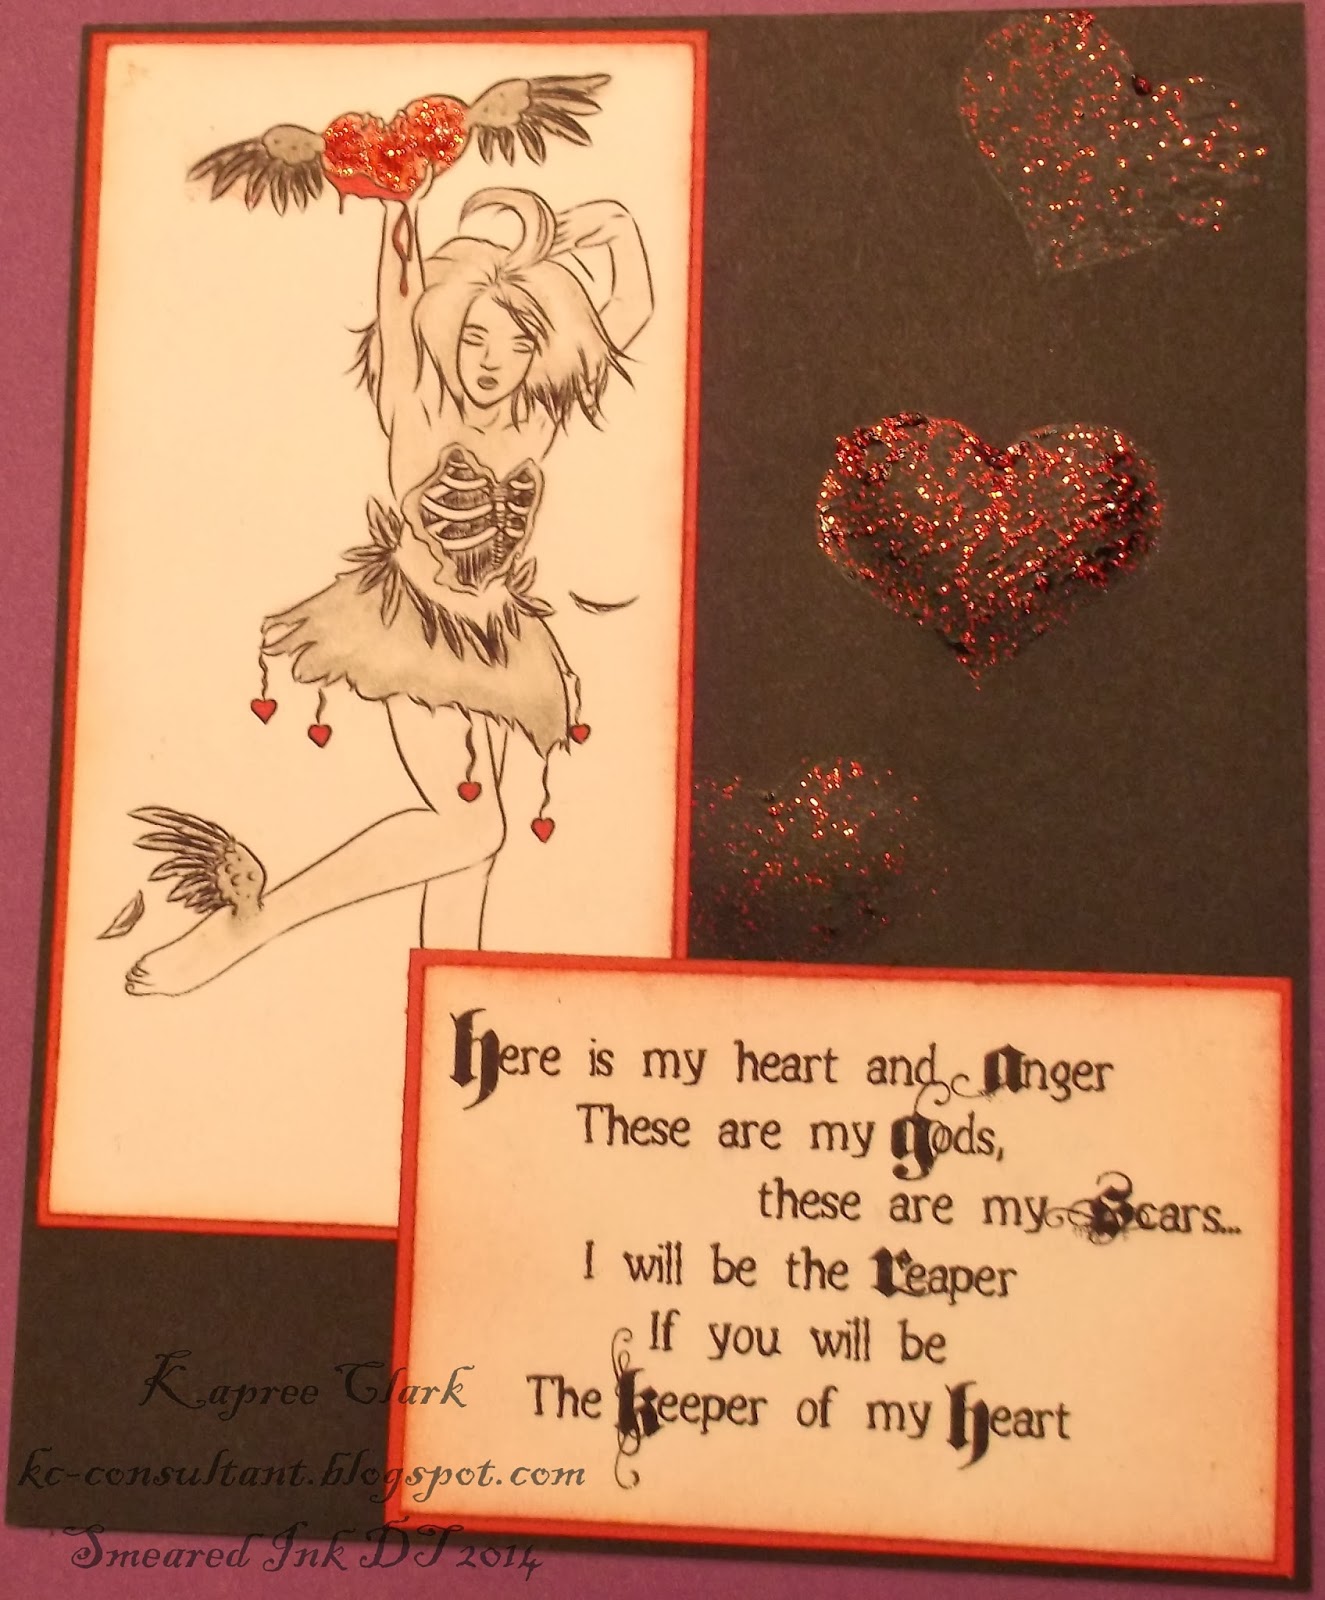 Here is my heart and Anger
These are my gods,
these are my Scars...
I will be the reaper
If you will be
The keeper of my heart
Kapree Clark
kc-consultant.blogspot.com
Smeared Ink DT 2014